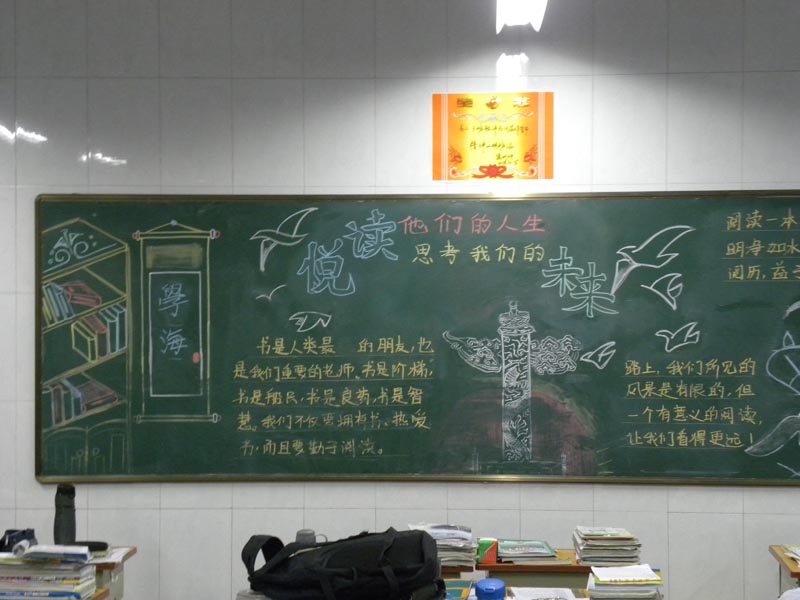 悦读他们的人生
思考我们的未来
學海
书是人类最 的朋友,也
是我们重要的老师。书是阶梯,
书是船只,书是良药,书是智
慧。我们不仅要拥有书、热爱
书,而且要勤于阅读。
路上,我们所见的
风景是有限的,但
一个有意义的阅读,
让我们看得更远!
阅读一本
明寿如水
阅历,益